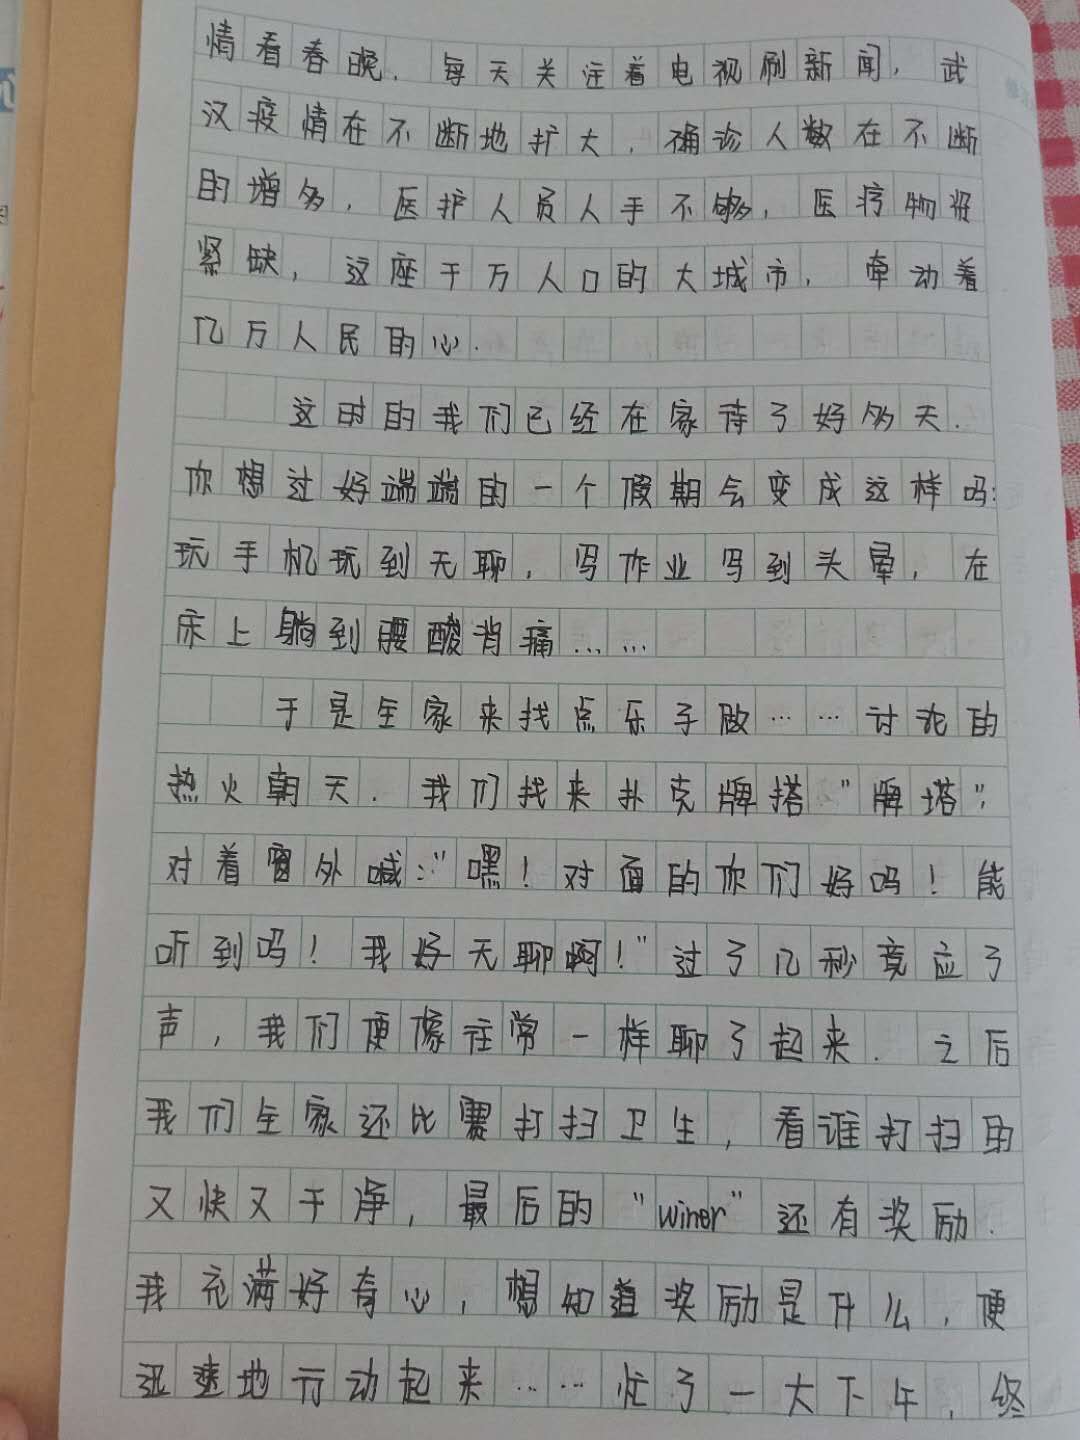 情看春晚.每天关注着电视刷新闻,武
汉疫情在不断地扩大,确诊人数在不断
的增多,医护人员人手不够,医疗物资
紧缺,这座千万人口的大城市,牵动着
亿万人民的心.
这时的我们已经在家待了好多天.
你想过好端端的一个假期会变成这样吗:
玩手机玩到无聊,写作业写到头晕,在
床上躺到腰酸背痛……
于是全家来找点乐子做……讨论的
热火朝天.我们找来扑克牌搭"牌塔",
对着窗外喊:"嘿!对面的你们好吗!能
听到吗!我好无聊啊!"过了几秒竟应了
声,我们便像往常一样聊了起来.之后
我们全家还比赛打扫卫生,看谁打扫的
又快又干净,最后的"winer"还有奖励.
我充满好奇心,想知道奖励是什么,便
迅速地行动起来……忙了一大下午,终